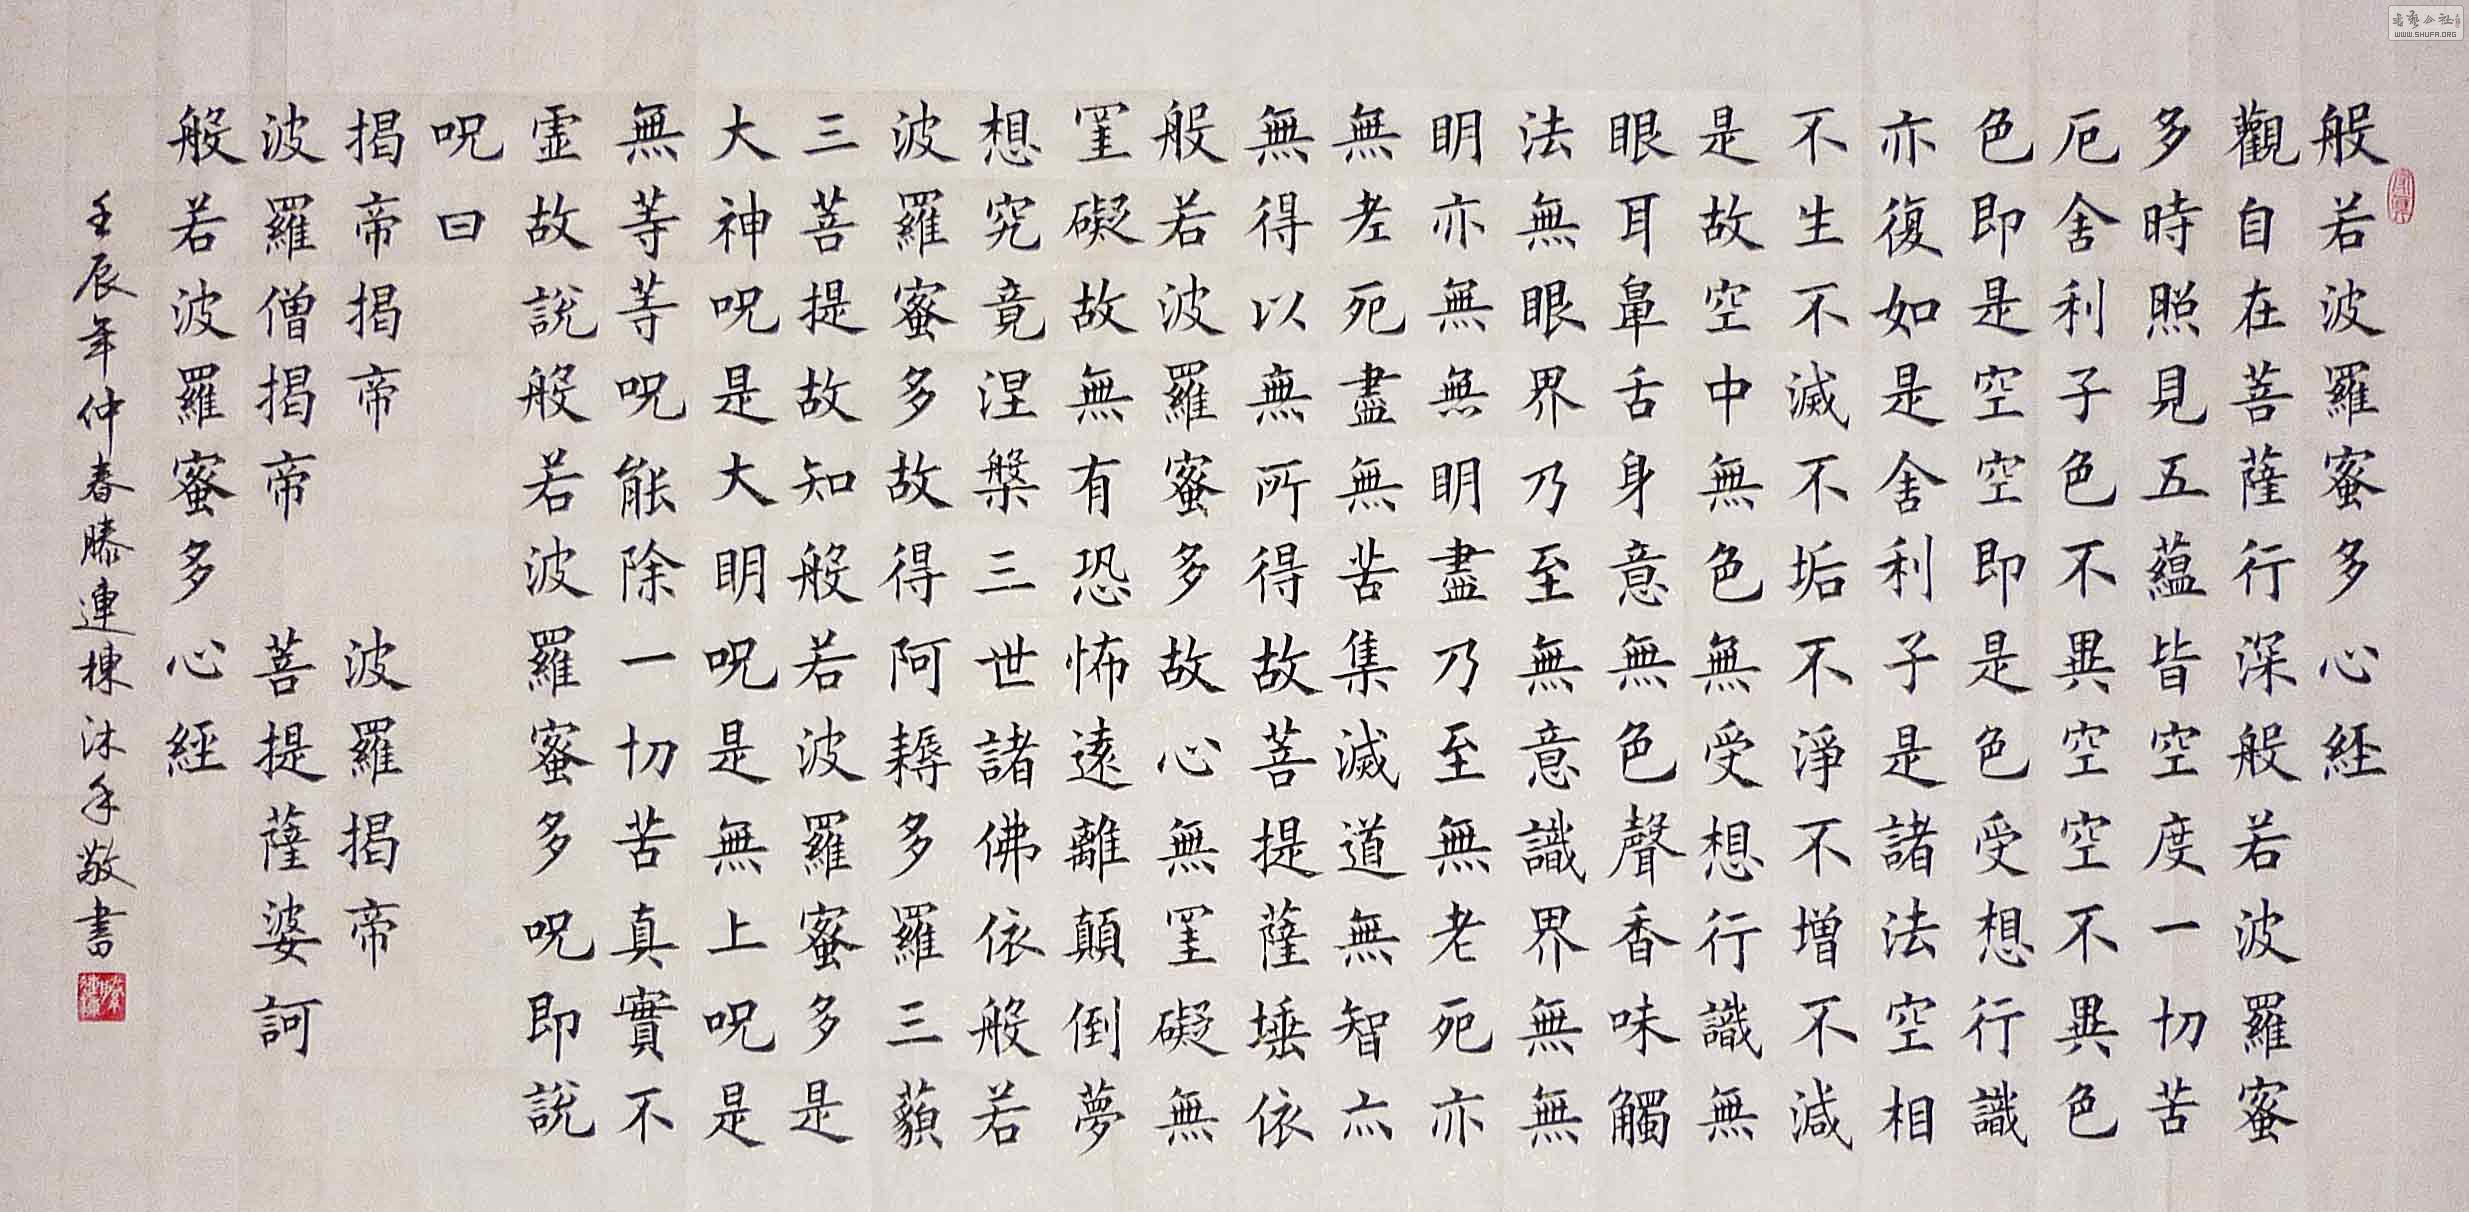 般若波羅蜜多心経
觀自在菩薩行深般若波羅蜜
多時照見五蘊皆空度一切苦
厄舍利子色不異空空不異色
色即是空空即是色受想行識
亦復如是舍利子是諸法空相
不生不滅不垢不淨不增不減
是故空中無色無受想行識無
眼耳鼻舌身意無色聲香味觸
法無眼界乃至無意識界無無
明亦無無明盡乃至無老死亦
無老死盡無苦集滅道無智亦
無得以無所得故菩提薩埵依
般若波羅蜜多故心無罣礙無
罣礙故無有恐怖遠離顛倒夢
想究竟涅槃三世諸佛依般若
波羅蜜多故得阿耨多羅三藐
三菩提故知般若波羅蜜多是
大神呪是大明呪是無上呪是
無等等呪能除一切苦真實不
虛故說般若波羅蜜多呪即說
呪曰
揭帝揭帝 波羅揭帝
波羅僧揭帝 菩提薩婆訶
般若波羅蜜多心経
壬辰年仲春滕連棟沐手敬書
WWW.SHUFA.ORG